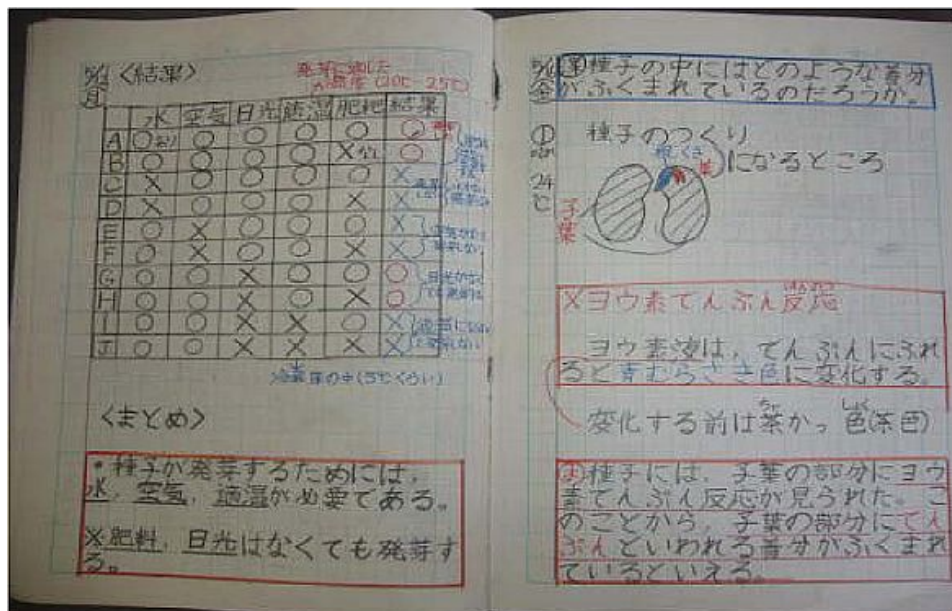 〈結果〉
月
水 空気 日光 適温 肥料 結果
A ○あり ○ ○ ○ ○ ○
B ○ ○ ○ ○ ×なし ○
C × ○ ○ ○ ○ ×
D × ○ ○ ○ × ×
E ○ × ○ ○ ○ ×
F ○ × ○ ○ × ×
G ○ ○ × ○ ○ ○
H ○ ○ × ○ × ○
I ○ ○ × × ○ ×
J ○ ○ × × × ×
〈まとめ〉
・種子が発芽するためには、
水、空気、適温が必要である。
※肥料、日光はなくても発芽す
る。
金
種子の中にはどのような養分
がふくまれているのだろうか。
種子のつくり
になるところ
24℃
子葉
※ヨウ素でんぷん反応
ヨウ素液は、でんぷんにふれ
ると青むらさき色に変化する。
変化する前は茶かっ色(茶色)
種子には、子葉の部分にヨウ
素でんぷん反応が見られた。こ
のことから、子葉の部分にでん
ぷんといわれる養分がふくまれ
ているといえる。